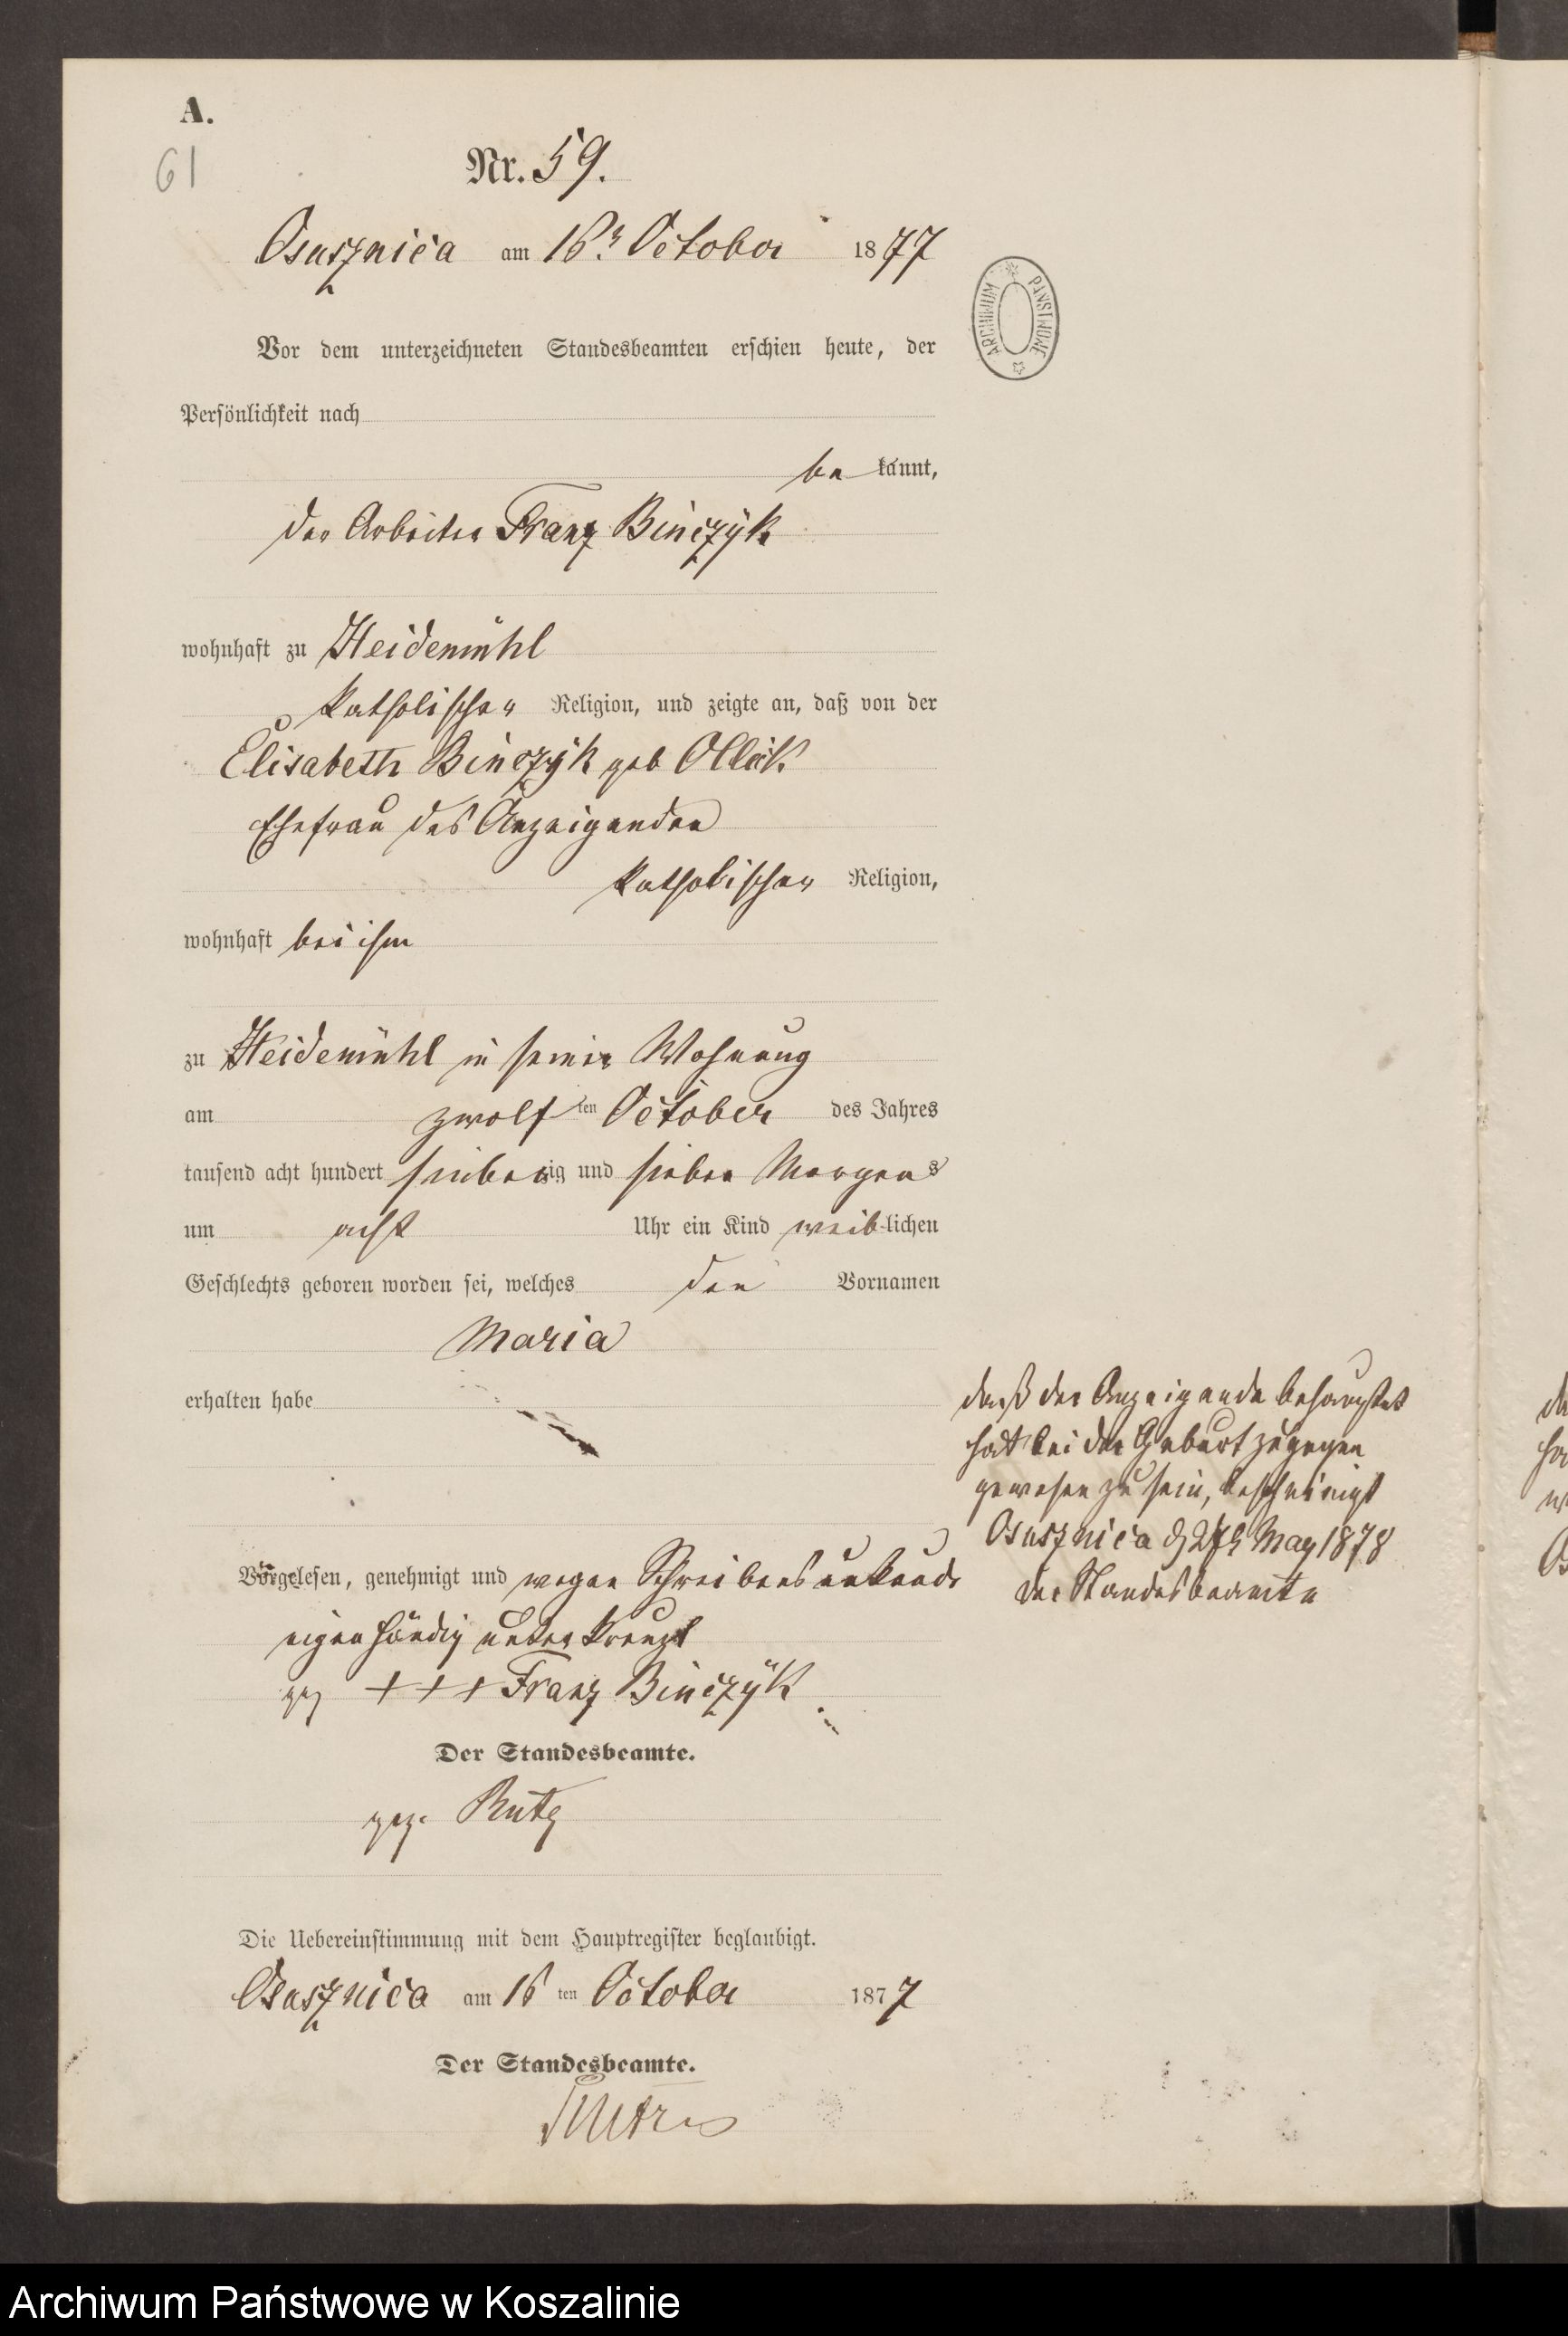 A.
61
Nr. 59.
Osusznica am 16t October 1877
ARCHIWUM PAŃSTWOWE
Vor dem unterzeichneten Standesbeamten erschien heute, der
Persönlichkeit nach
be kannt,
der Arbeiter Franz Binczÿk
wohnhaft zu Heidemühl
katholischer Religion, und zeigte an, daß von der
Elisabeth Binczÿk geb
Ehefrau des Anzeigenden
katholischer Religion,
wohnhaft bei ihm
zu Heidemühl in seiner Wohnung
am zwolf ten October des Jahres
tausend acht hundert siebenzig und sieben Morgens
um acht Uhr ein Kind weib-lichen
Geschlechts geboren worden sei, welches den Vornamen
Maria
erhalten habe
daß der Anzeigende behauptet
hat bei der Geburt zugegen
gewesen zu sein, bescheinigt
Osusznica May 1878
der Standesbeamte
Vorgelesen, genehmigt und wegen Schreibensunkunde
eigenhändig unterkreuzt
gez +++ Franz Binczÿk
Der Standesbeamte.
gez. Rutz
Die Uebereinstimmung mit dem Hauptregister beglaubigt.
Osusznica am 16 ten October 1877
Der Standesbeamte.
Archiwum Państwowe w Koszalinie